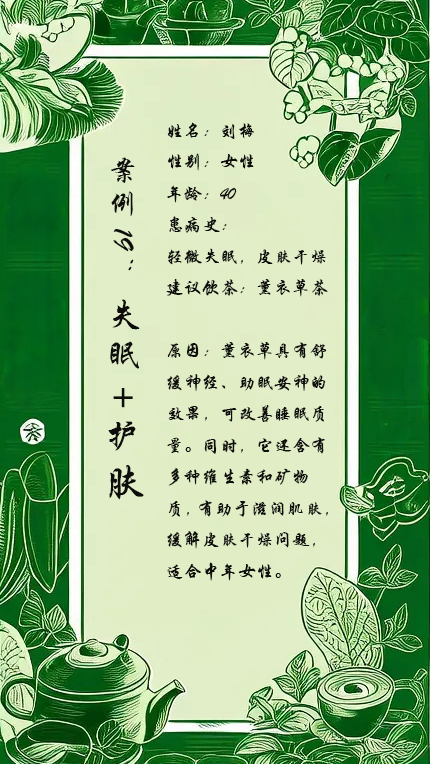 案例19：失眠+护肤
姓名：刘梅
性别：女性
年龄：40
患病史：
轻微失眠，皮肤干燥
建议饮茶：薰衣草茶
原因：薰衣草具有舒
缓神经、助眠安神的
效果，可改善睡眠质
量。同时，它还含有
多种维生素和矿物
质，有助于滋润肌肤，
缓解皮肤干燥问题，
适合中年女性。